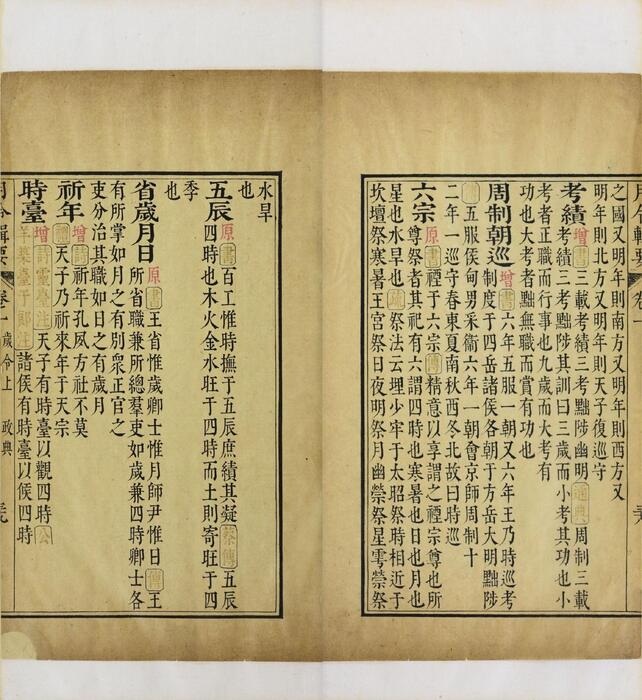 之國又明年則南方又明年則西方又
明年則北方又明年則天子復巡守
考績增書三載考績三考黜陟幽明通典周制三載
考績三考黜陟其訓曰三歲而小考其功也小
考者正職而行事也九歲而大考有
功也大考者黜無職而賞有功也
周制朝巡增書六年五服一朝又六年王乃時巡考
制度于四岳諸侯各朝于方岳大明黜陟
五服侯甸男采衞六年一朝會京師周制十
二年一巡守春東夏南秋西冬北故曰時巡
六宗原書禋于六宗傳精意以享謂之禋宗尊也所
尊祭者其祀有六謂四時也寒暑也日也月也
星也水旱也疏祭法云埋少牢于太昭祭時相近于
坎壇祭寒暑王宮祭日夜明祭月幽禜祭星雩禜祭
水旱
也
五辰原書百工惟時撫于五辰庶績其凝蔡傳五辰
四時也木火金水旺于四時而土則寄旺于四
季
也
省歲月日原書王省惟歲卿士惟月師尹惟日傳王
所省職兼所總羣吏如歲兼四時卿士各
有所掌如月之有別衆正官之
吏分治其職如日之有歲月
祈年增詩祈年孔夙方社不莫
禮天子乃祈來年于天宗
時臺增詩靈臺注天子有時臺以觀四時公
羊築臺于郎注諸侯有時臺以候四時
月令輯要 卷一 歲令上 政典